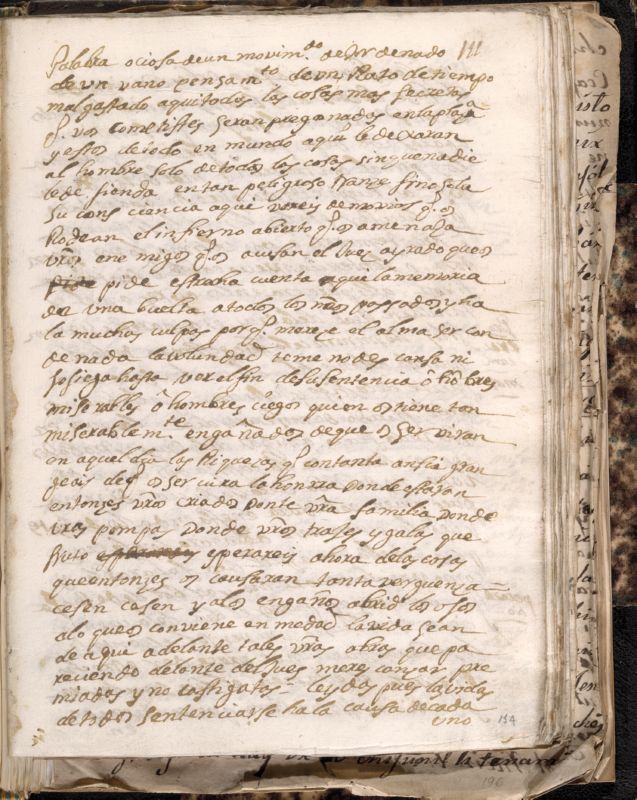 Palabra ociosa de un movim.to desordenado 111
de un vano pensam.to de un Rato de tiempo
mal gastado aqui todas las cosas mas secretas
q.e vos cometistes seran pregonadas en la plaça
y estos de todo en mundo aqui le dexaran
al hombre solo de todas las cosas sin que nadie
le defienda en tan peligroso tranze sino sola
su consciencia aqui vereis demonios q.e os
Rodean el infierno abierto q.e os amenaza
vros enemigos q.e os acusan el Juez ayrado que os
pide estraha cuenta aqui la memoria
da una buelta a todos los años passados y ha
la muchas culpas por q.e mereze el alma ser con
denada la voluntad teme no descansa ni
sosiega hasta ver el fin de su sentencia ô hōbres
miserables ô hombres ciegos quien os tiene tan
miserablem.te engañados de que os serviran
en aquel dia las Riquezas q.e con tanta ansia gran
jeais de q.e os servira la honrra donde estaran
entonzes vros criados donde vra familia donde
vras pompas donde vros trajes y galas que
fruto esperareis ahora de las cosas
que entonzes os causaran tanta verguenza =
cesen cesen ya los engaños abrid los ojos
a lo que os conviene enmedad la vida sean
de aqui adelante tales vras obras que pa
reciendo delante del Jues merescan ser pre
miadas y no castigadas = leydas pues las vidas
de todos sentenciarse ha la causa de cada
uno 154
196